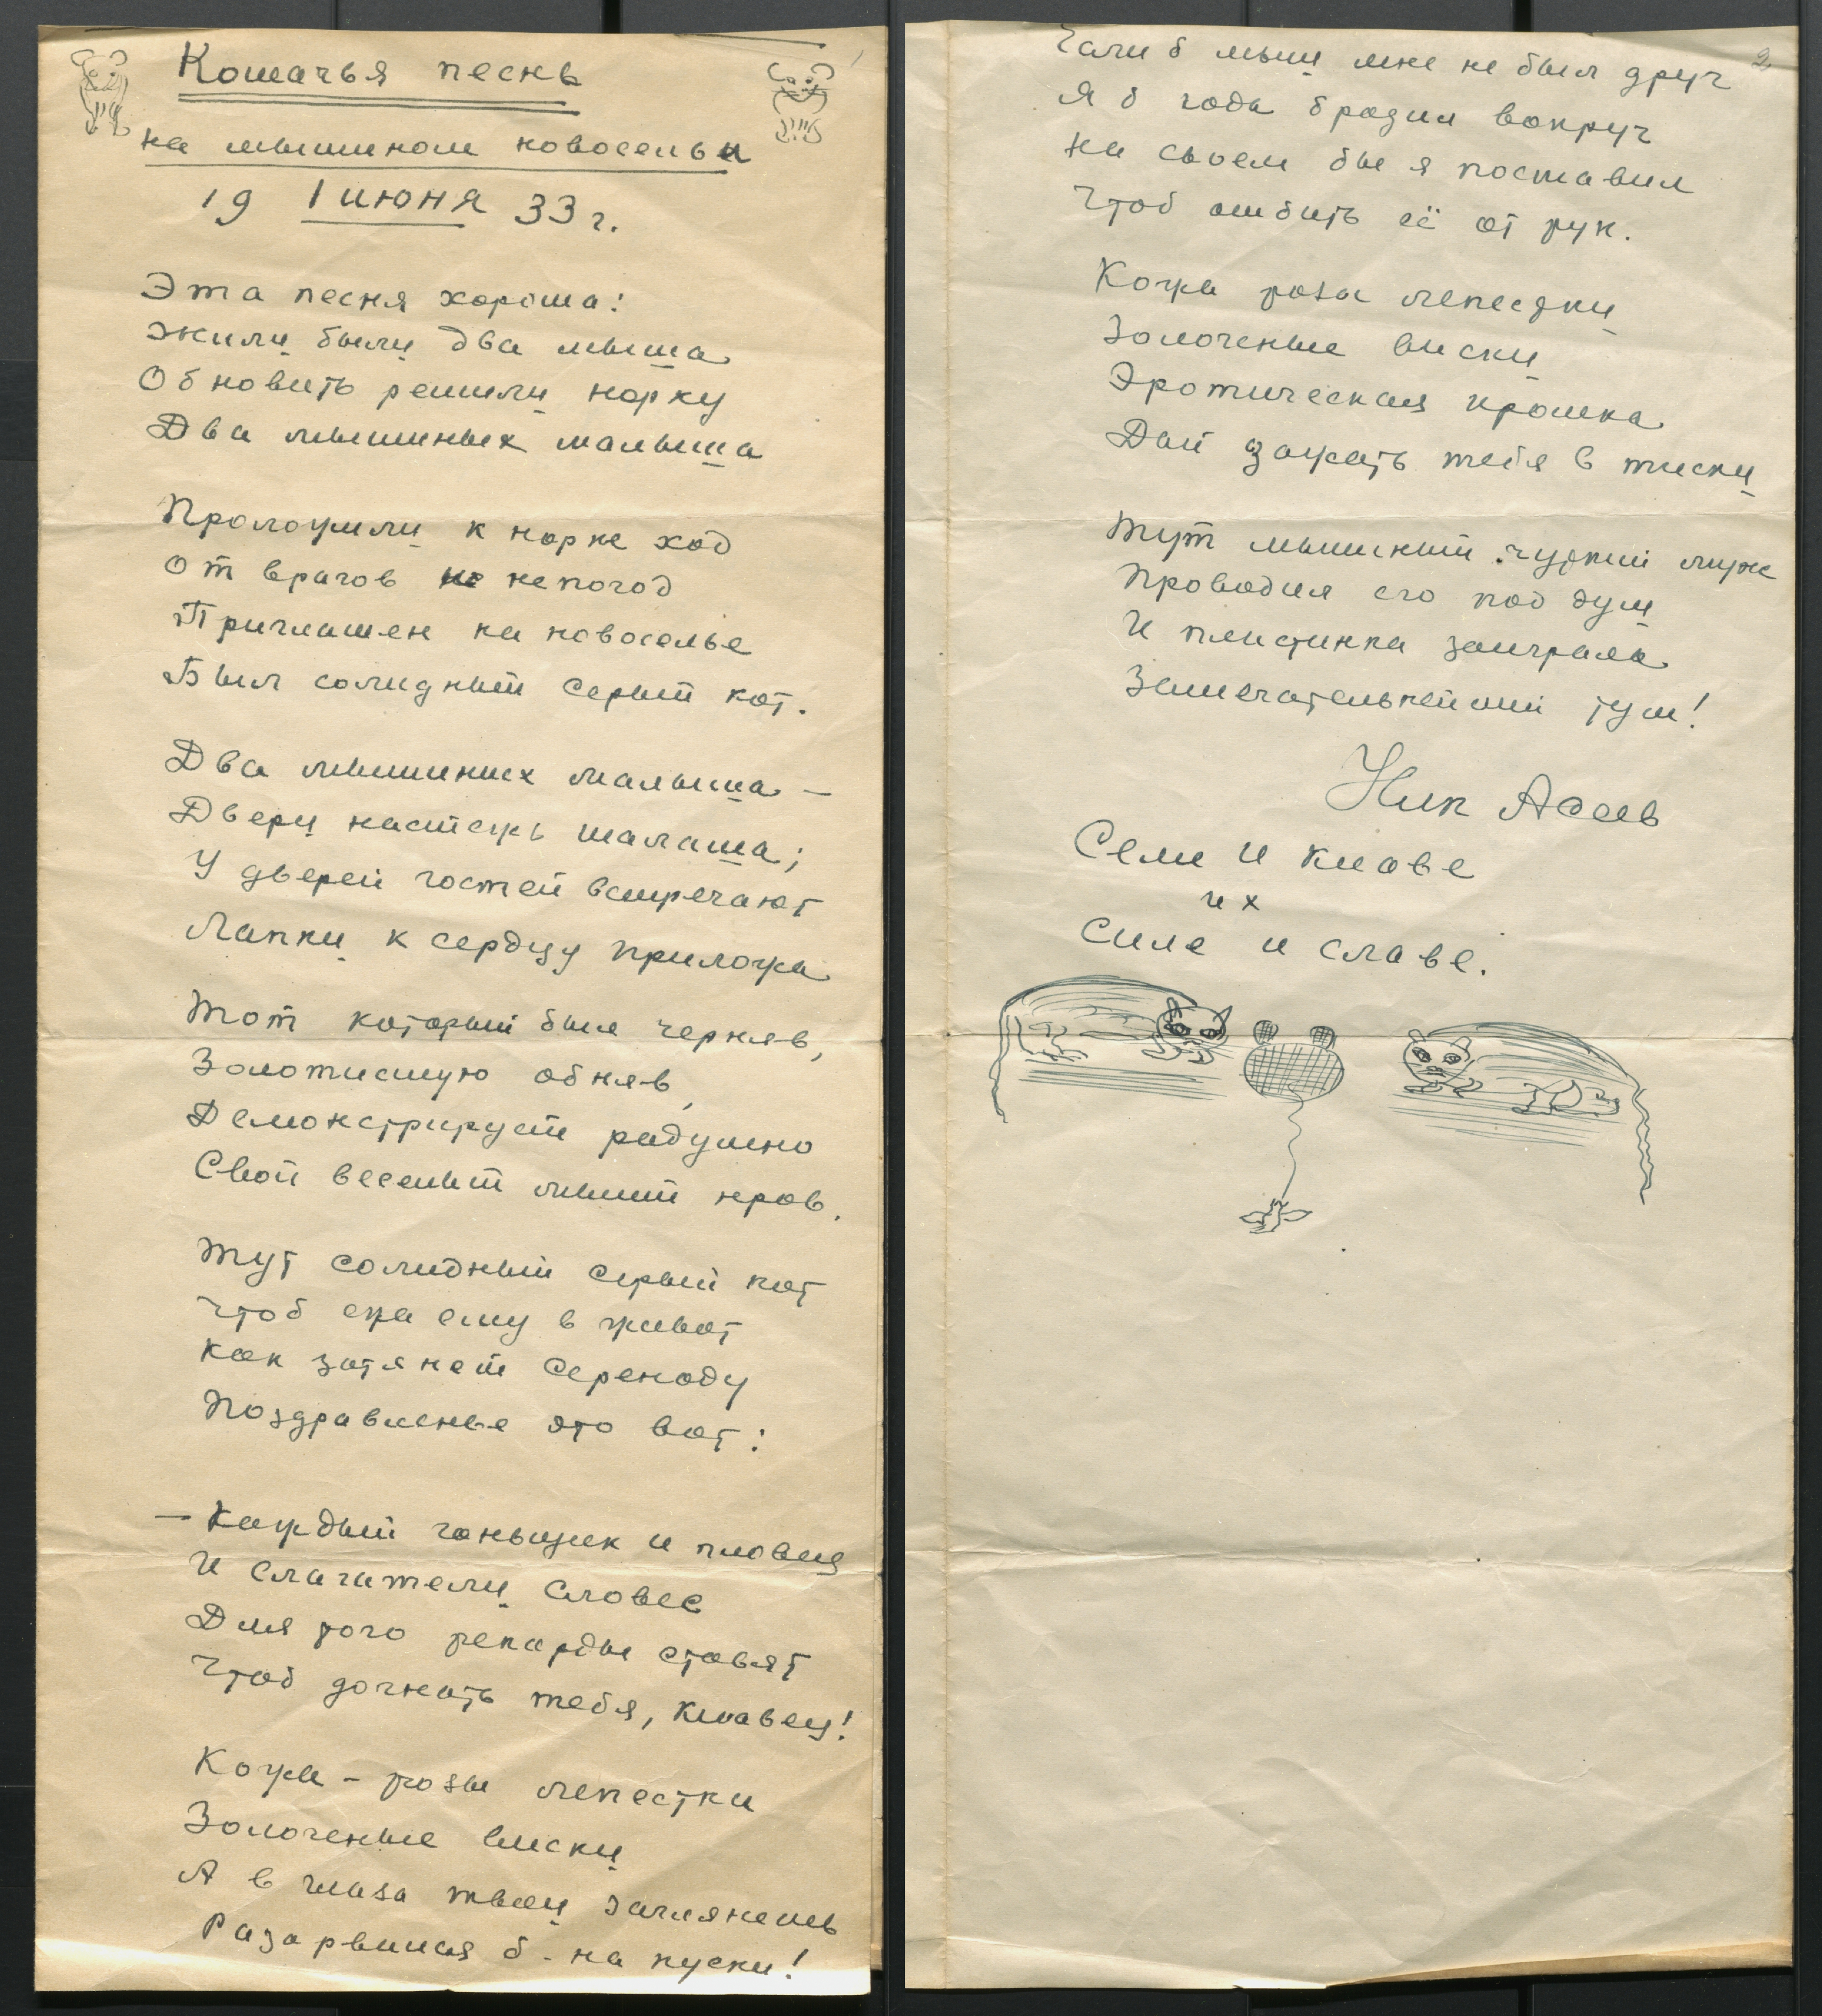 Кошачья песнь
на мышином новосельи
19 1 июня 33 г.
Эта песня хороша:
Жили были два мыша
Обновить решили норку
Два мышиных малыша
Проложили к норке ход
От врагов не непогод
Приглашен на новоселье
Был солидный серый кот.
Два мышиных малыша —
Двери настежь шалаша;
У дверей гостей встречают
Лапки к сердцу приложа
Тот который был черняв,
Золотистую обняв,
Демонстрирует радушно
Свой веселый мыший нрав.
Тут солидный серый кот
Чтоб ежа ему в живот
Как затянет серенаду
Поздравленье это вот:
— Каждый гоньщик и пловец
И слагатели словес
Для того рекорды ставят
Чтоб догнать тебя, Клавец!
Кожа – розы лепестки
Золоченые виски
А в глаза твои заглянешь
Разорвешься б - на куски!
2
Если б мыш мне не был друг
Я б года бродил вокруг
На своем бы я поставил
Чтоб отбить её от рук.
Кожа роза лепестки
Золоченые виски
Эротическая крошка
Дай зажать тебя в тиски
Тут мышиный чуткий муж
Проводил его под душ
И пластинка заиграла
Замечательнейший туш!
Ник Асеев
Семе и Клаве
их
силе и славе.